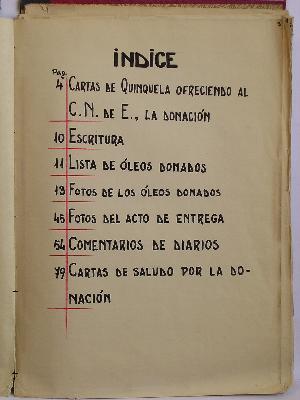 ÍNDICE
Pag.
4 CARTAS DE QUINQUELA OFRECIENDO AL
C.N. DE E., LA DONACIÓN
10 ESCRITURA
11 LISTA DE ÓLEOS DONADOS
13 FOTOS DE LOS ÓLEOS DONADOS
45 FOTOS DEL ACTO DE ENTREGA
54 COMENTARIOS DE DIARIOS
79 CARTAS DE SALUDO POR LA DO-
NACIÓN